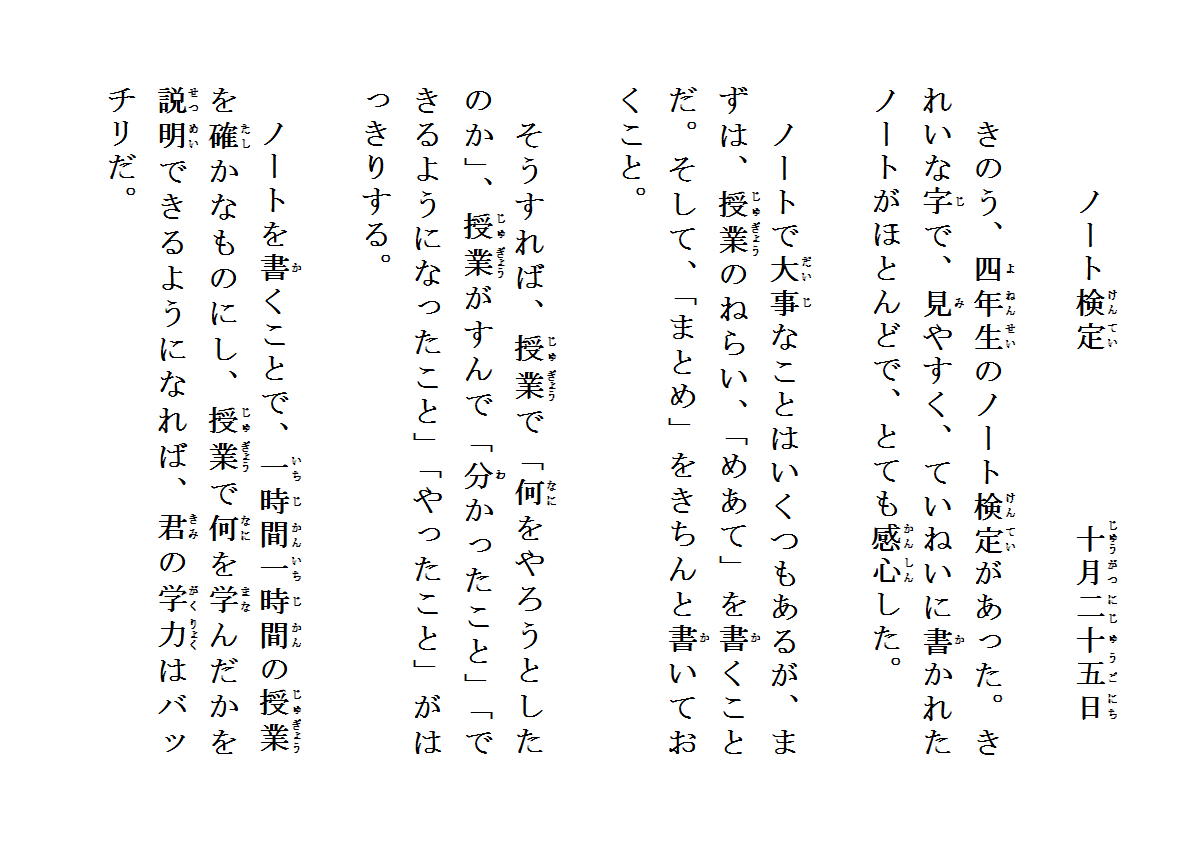 ノート検定　十月二十五日
きのう、四年生のノート検定があった。き
れいな字で、見やすく、ていねいに書かれた
ノートがほとんどで、とても感心した。
ノートで大事なことはいくつもあるが、ま
ずは、授業のねらい、「めあて」を書くこと
だ。そして、「まとめ」をきちんと書いてお
くこと。
そうすれば、授業で「何をやろうとした
のか」、授業がすんで「分かったこと」「で
きるようになったこと」「やったこと」がは
っきりする。
ノートを書くことで、一時間一時間の授業
を確かなものにし、授業で何を学んだかを
説明できるようになれば、君の学力はバッ
チリだ。